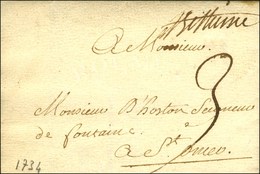 Bethune
A Monsieur
Monsieur D'hoston Seigneur
de fontaine
3
a St omer
1734